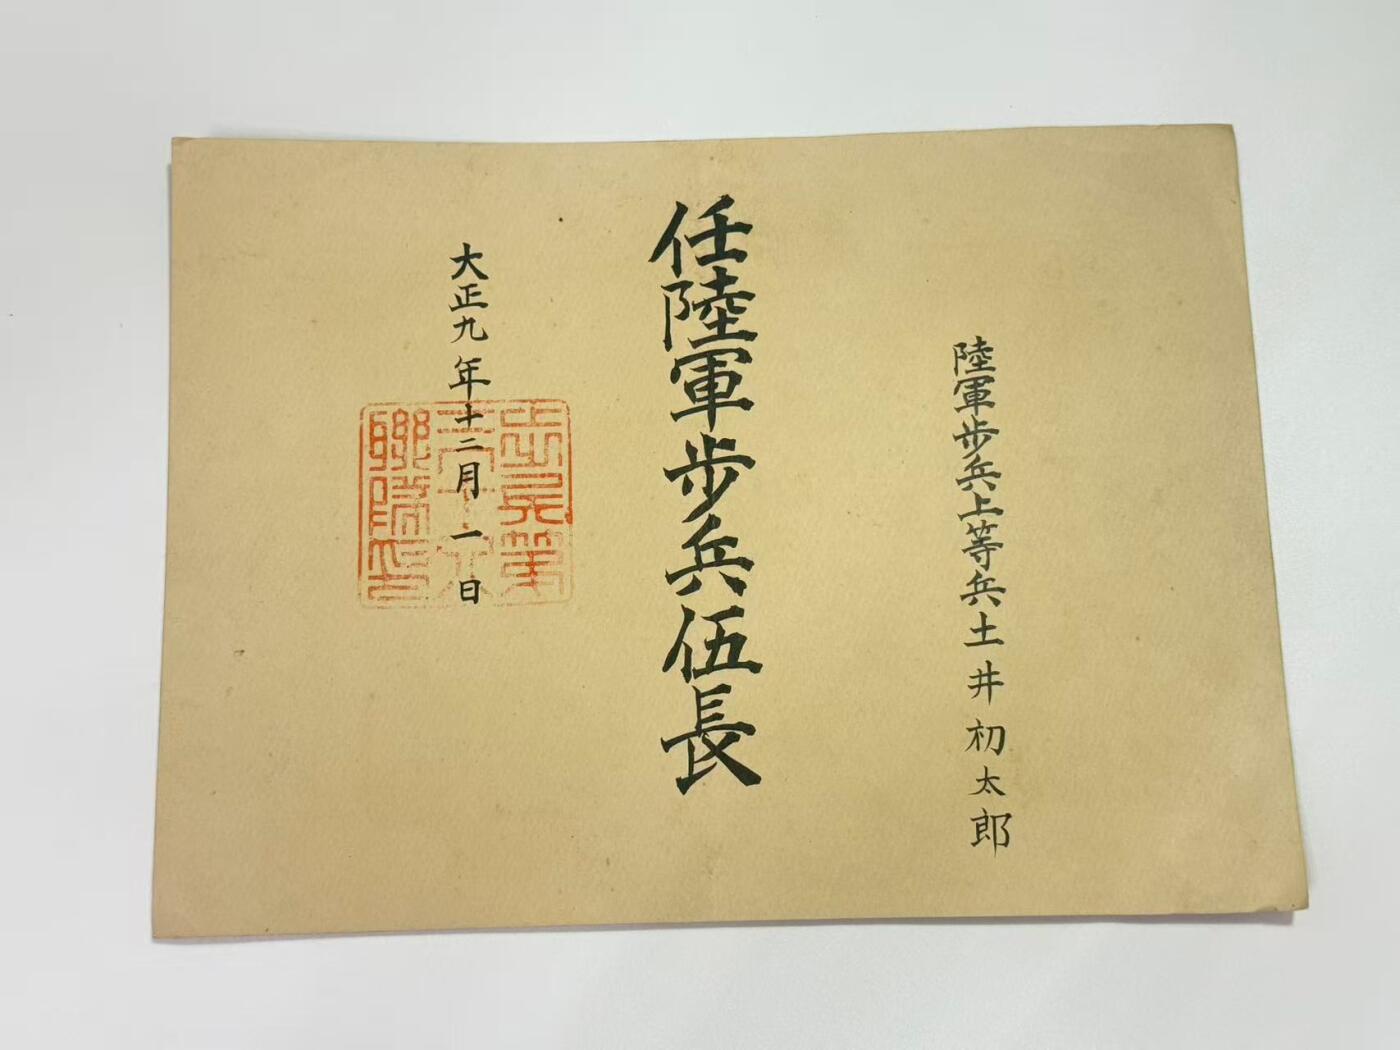 陸軍歩兵上等兵土井初太郎
任陸軍歩兵伍長
大正九年十二月一日
歩兵第
聯隊印